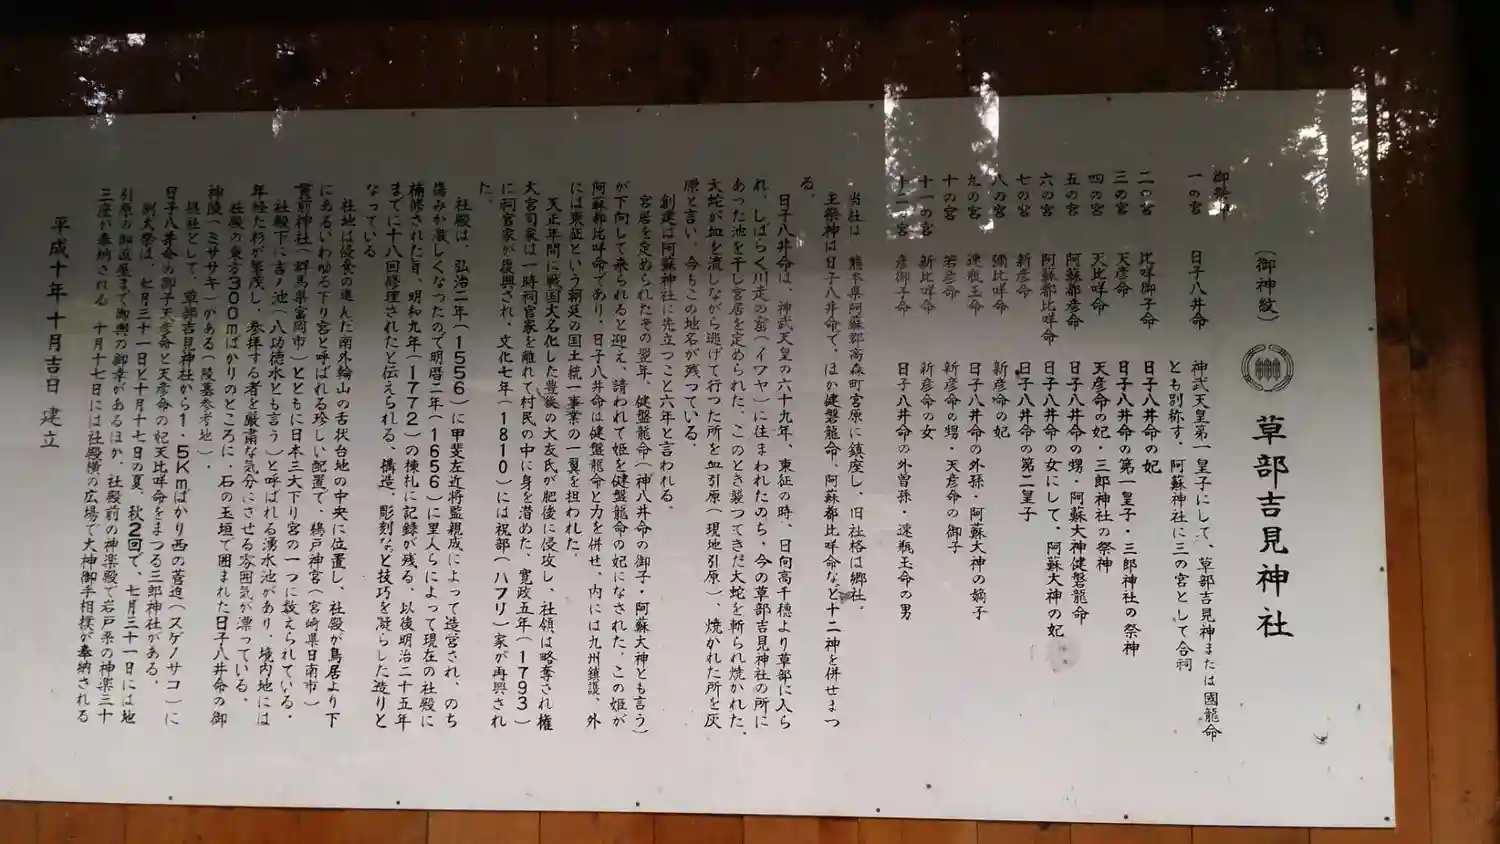 草部吉見神社
(御神紋)
御祭神
一の宮 日子八井命 神武天皇第一皇子にして、草部吉見神または國龍命
とも別称す。阿蘇神社に三の宮として合祠
二の宮 比咩御子命 日子八井命の妃
三の宮 天彦命 日子八井命の第一皇子・三郎神社の祭神
四の宮 天比咩命 天彦命の妃・三郎神社の祭神
五の宮 阿蘇都彦命 日子八井命の甥・阿蘇大神健磐龍命
六の宮 阿蘇都比咩命 日子八井命の女にして、阿蘇大神の妃
七の宮 新彦命 日子八井命の第二皇子
八の宮 彌比咩命 新彦命の妃
九の宮 速瓶玉命 日子八井命の外孫・阿蘇大神の嫡子
十の宮 若彦命 新彦命の甥・天彦命の御子
十一の宮 新比咩命 新彦命の女
十二の宮 彦御子命 日子八井命の外曽孫・速瓶玉命の男
当社は、熊本県阿蘇郡高森町宮原に鎮座し、旧社格は郷社。
主祭神は日子八井命で、ほか健磐龍命、阿蘇都比咩命など十二神を併せまつ
る。
日子八井命は、神武天皇の六十九年、東征の時、日向高千穂より草部に入ら
れ、しばらく川走の窟(イワヤ)に住まわれたのち、今の草部吉見神社の所に
あった池を干し宮居を定められた、このとき襲つてきた大蛇を斬られ焼かれた、
大蛇が血を流しながら逃げて行つた所を血引原(現地引原)、焼かれた所を灰
原と言い、今もこの地名が残っている。
創建は阿蘇神社に先立つこと六年と言われる。
宮居を定められたその翌年、健磐龍命(神八井命の御子・阿蘇大神とも言う)
が下向して来られると迎え、請われて姫を健磐龍命の妃になされた、この姫が
阿蘇都比咩命であり、日子八井命は健磐龍命と力を併せ、内には九州鎮護、外
には東征という朝廷の国土統一事業の一翼を担われた。
天正年間に戦国大名化した豊後の大友氏が肥後に侵攻し、社領は略奪され権
大宮司家は一時祠官家を離れて村民の中に身を潜めた、寛政五年(1793)
に祠官家が復興され、文化七年(1810)には祝部(ハフリ)家が再興され
た。
社殿は、弘治二年(1556)に甲斐左近将監親成によって造営され、のち
傷みか激しくなつたので明暦二年(1656)に里人らによって現在の社殿に
補修された旨、明和九年(1772)の棟札に記録が残る、以後明治二十五年
までに十八回修理されたと伝えられる、構造、彫刻など技巧を凝らした造りと
なっている
社地は侵食の進んだ南外輪山の舌状台地の中央に位置し、社殿が鳥居より下
にあるいわゆる下り宮と呼ばれる珍しい配置で、鵜戸神宮(宮崎県日南市)
貫前神社(群馬県富岡市)とともに日本三大下り宮の一つに数えられている・
社殿下に吉ノ池(八功徳水とも言う)と呼ばれる湧水池があり、境内地には
年経た杉が繁茂し、参拝する者を厳粛な気分にさせる雰囲気が漂っている。
社殿の東方300mばかりのところに、石の玉垣で囲まれた日子八井命の御
神陵(ミササキ)かある(陵墓参考地)。
摂社として、草部吉見神社から1.5Kmばかり西の菅迫(スゲノサコ)に
日子八井命の御子天彦命と天彦命の妃天比咩命をまつる三郎神社がある。
例大祭は、七月三十一日と十月十七日の夏、秋2回で、七月三十一日には地
引原の御仮屋まで御輿の御幸があるほか、社殿前の神楽殿で岩戸系の神楽三十
三座が奉納される 十月十七日には社殿横の広場で大神御手相撲が奉納される
平成十年十月吉日 建立